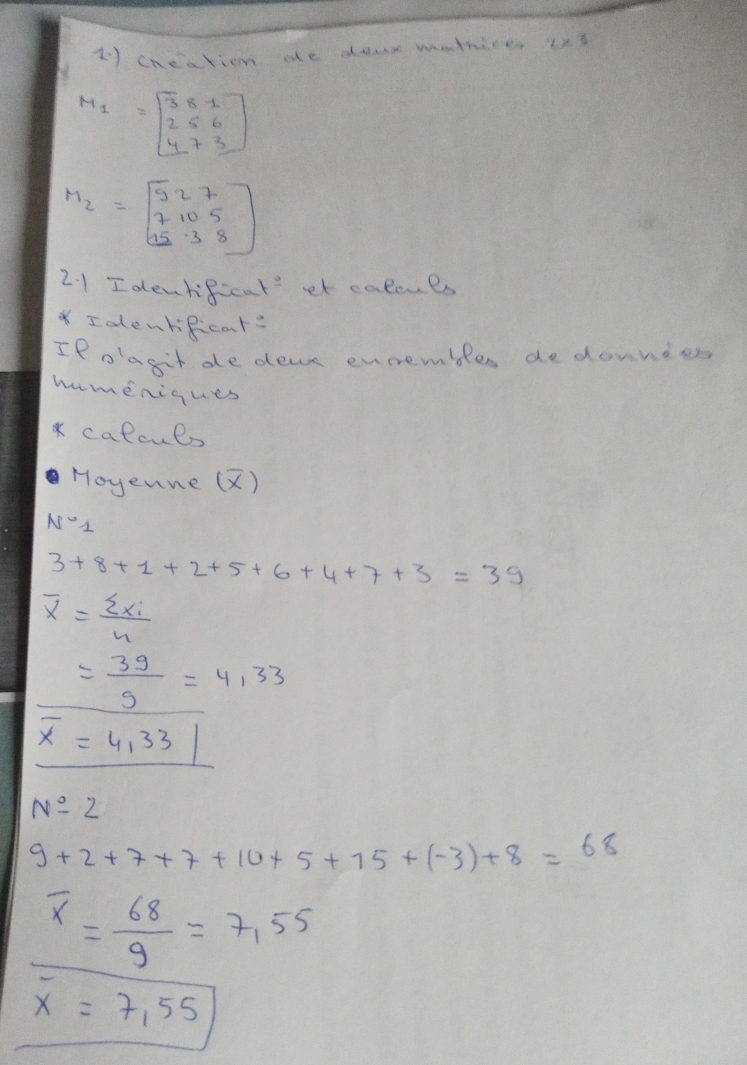 1.) Création de deux matrices
M1 = [3 8 1
2 5 6
4 7 3]
M2 = [9 2 7
7 10 5
15 -3 8]
2.) Identificat° et calculs
* Identificat°
Il s'agit de deux ensembles de données
numériques
* calculs
• Moyenne (x̄)
N°1
3+8+1+2+5+6+4+7+3 = 39
x̄ = Σxi/n
= 39/9 = 4,33
x̄ = 4,33
N° 2
9+2+7+7+10+5+15+(-3)+8 = 68
x̄ = 68/9 = 7,55
x̄ = 7,55